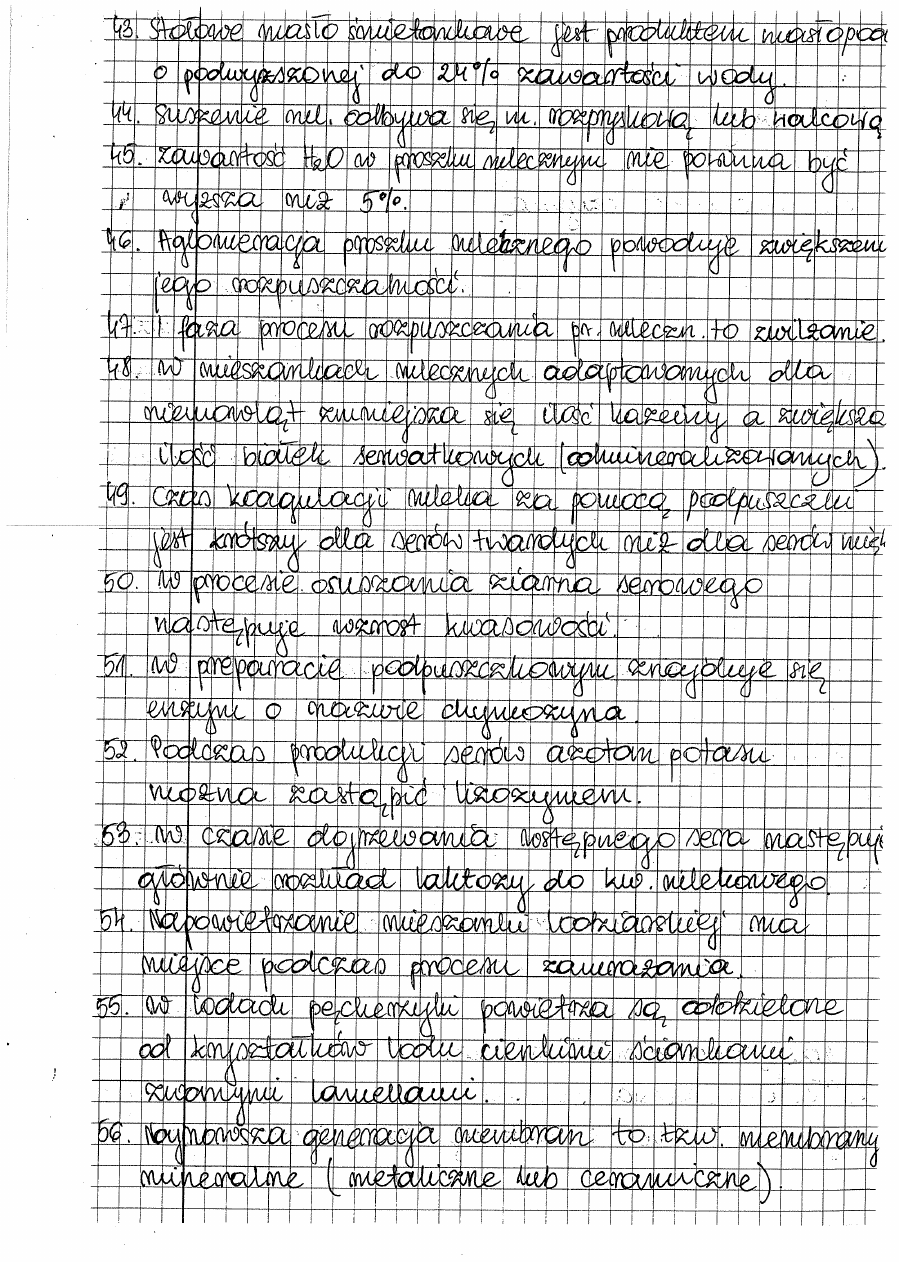 43. Stołowe masło śmietankowe jest produktem masłopod
o podwyższonej do 24% zawartości wody.
44. Suszenie ml. odbywa się m. rozpryskową lub walcową
45. zawartość H₂O w proszku mlecznym nie powinna być
wyższa niż 5%.
46. Aglomeracja proszku mlecznego powoduje zwiększeni
jego rozpuszczalności.
47. I faza procesu rozpuszczania pr. mleczn. to zwilżanie.
48. w mieszankach mlecznych adaptowanych dla
niemowląt zmniejsza się ilość kazeiny a zwiększa
ilość białek serwatkowych (odmineralizowanych).
49. Czas koagulacji mleka za pomocą podpuszczki
jest krótszy dla serów twardych niż dla serów mięk
50. w procesie osuszania ziarna serowego
następuje wzrost kwasowości.
51. w preparacie podpuszczkowym znajduje się
enzym o nazwie chymozyna.
52. Podczas produkcji serów azotan potasu
można zastąpić lizozymem.
53. w czasie dojrzewania wstępnego sera następuj
głównie rozkład laktozy do kw. mlekowego.
54. Napowietrzanie mieszanki lodziarskiej ma
miejsce podczas procesu zamrażania.
55. w lodach pęcherzyki powietrza są oddzielone
od kryształków lodu cienkimi ściankami
zwanymi lamellami.
56. Najnowsza generacja membran to tzw. membrany
mineralne (metaliczne lub ceramiczne).